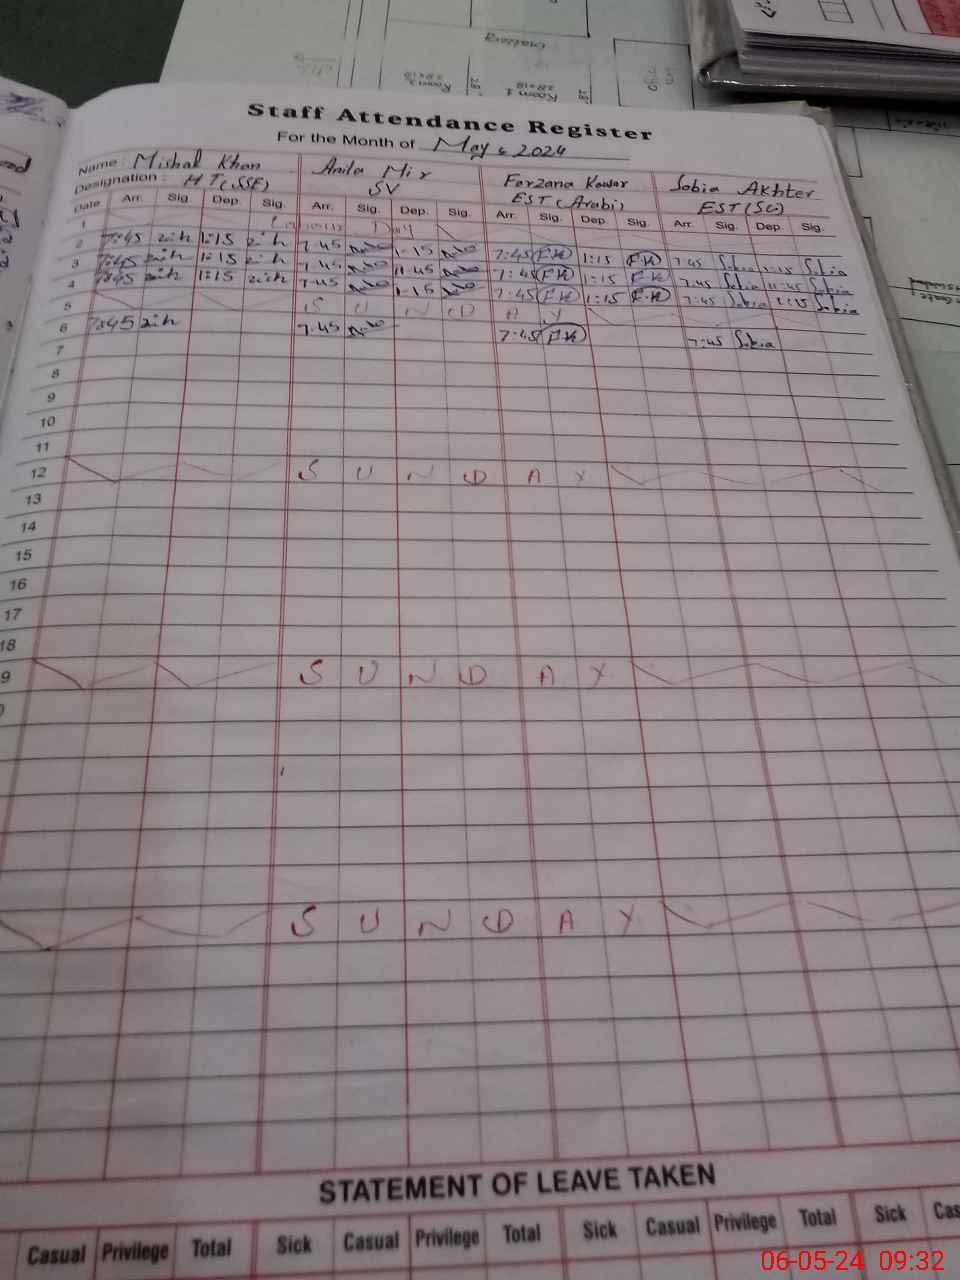 Challeng
Room
28x18
Room 1
28x18
Staff Attendance Register
For the Month of May 2024
Name : Mishal Khan Anila Mir Farzana Kausar Sobia Akhter
Designation : HT(SSE) SV EST (Arabi) EST(Sc)
Date Arr. Sig. Dep. Sig. Arr. Sig. Dep. Sig. Arr. Sig. Dep. Sig. Arr. Sig. Dep. Sig.
1
2 7:45 1:15 7.45 1.15 7:45 F.K 1:15 F.K 7:45 Sobia 1:15 Sobia
3 7:45 1:15 7.45 11.45 7:45 F.K 1:15 F.K 7:45 Sobia 11:45 Sobia
4 7:45 1:15 7.45 1.15 7:45 F.K 1:15 F.K 7:45 Sobia 1:15 Sobia
5 S U N D A Y
6 7:45 7.45 7:45 F.K 7:45 Sobia
7
8
9
10
11
12 S U N D A Y
13
14
15
16
17
18
9 S U N D A Y
S U N D A Y
STATEMENT OF LEAVE TAKEN
Casual Privilege Total Sick Casual Privilege Total Sick Casual Privilege Total Sick Cas
06-05-24 09:32